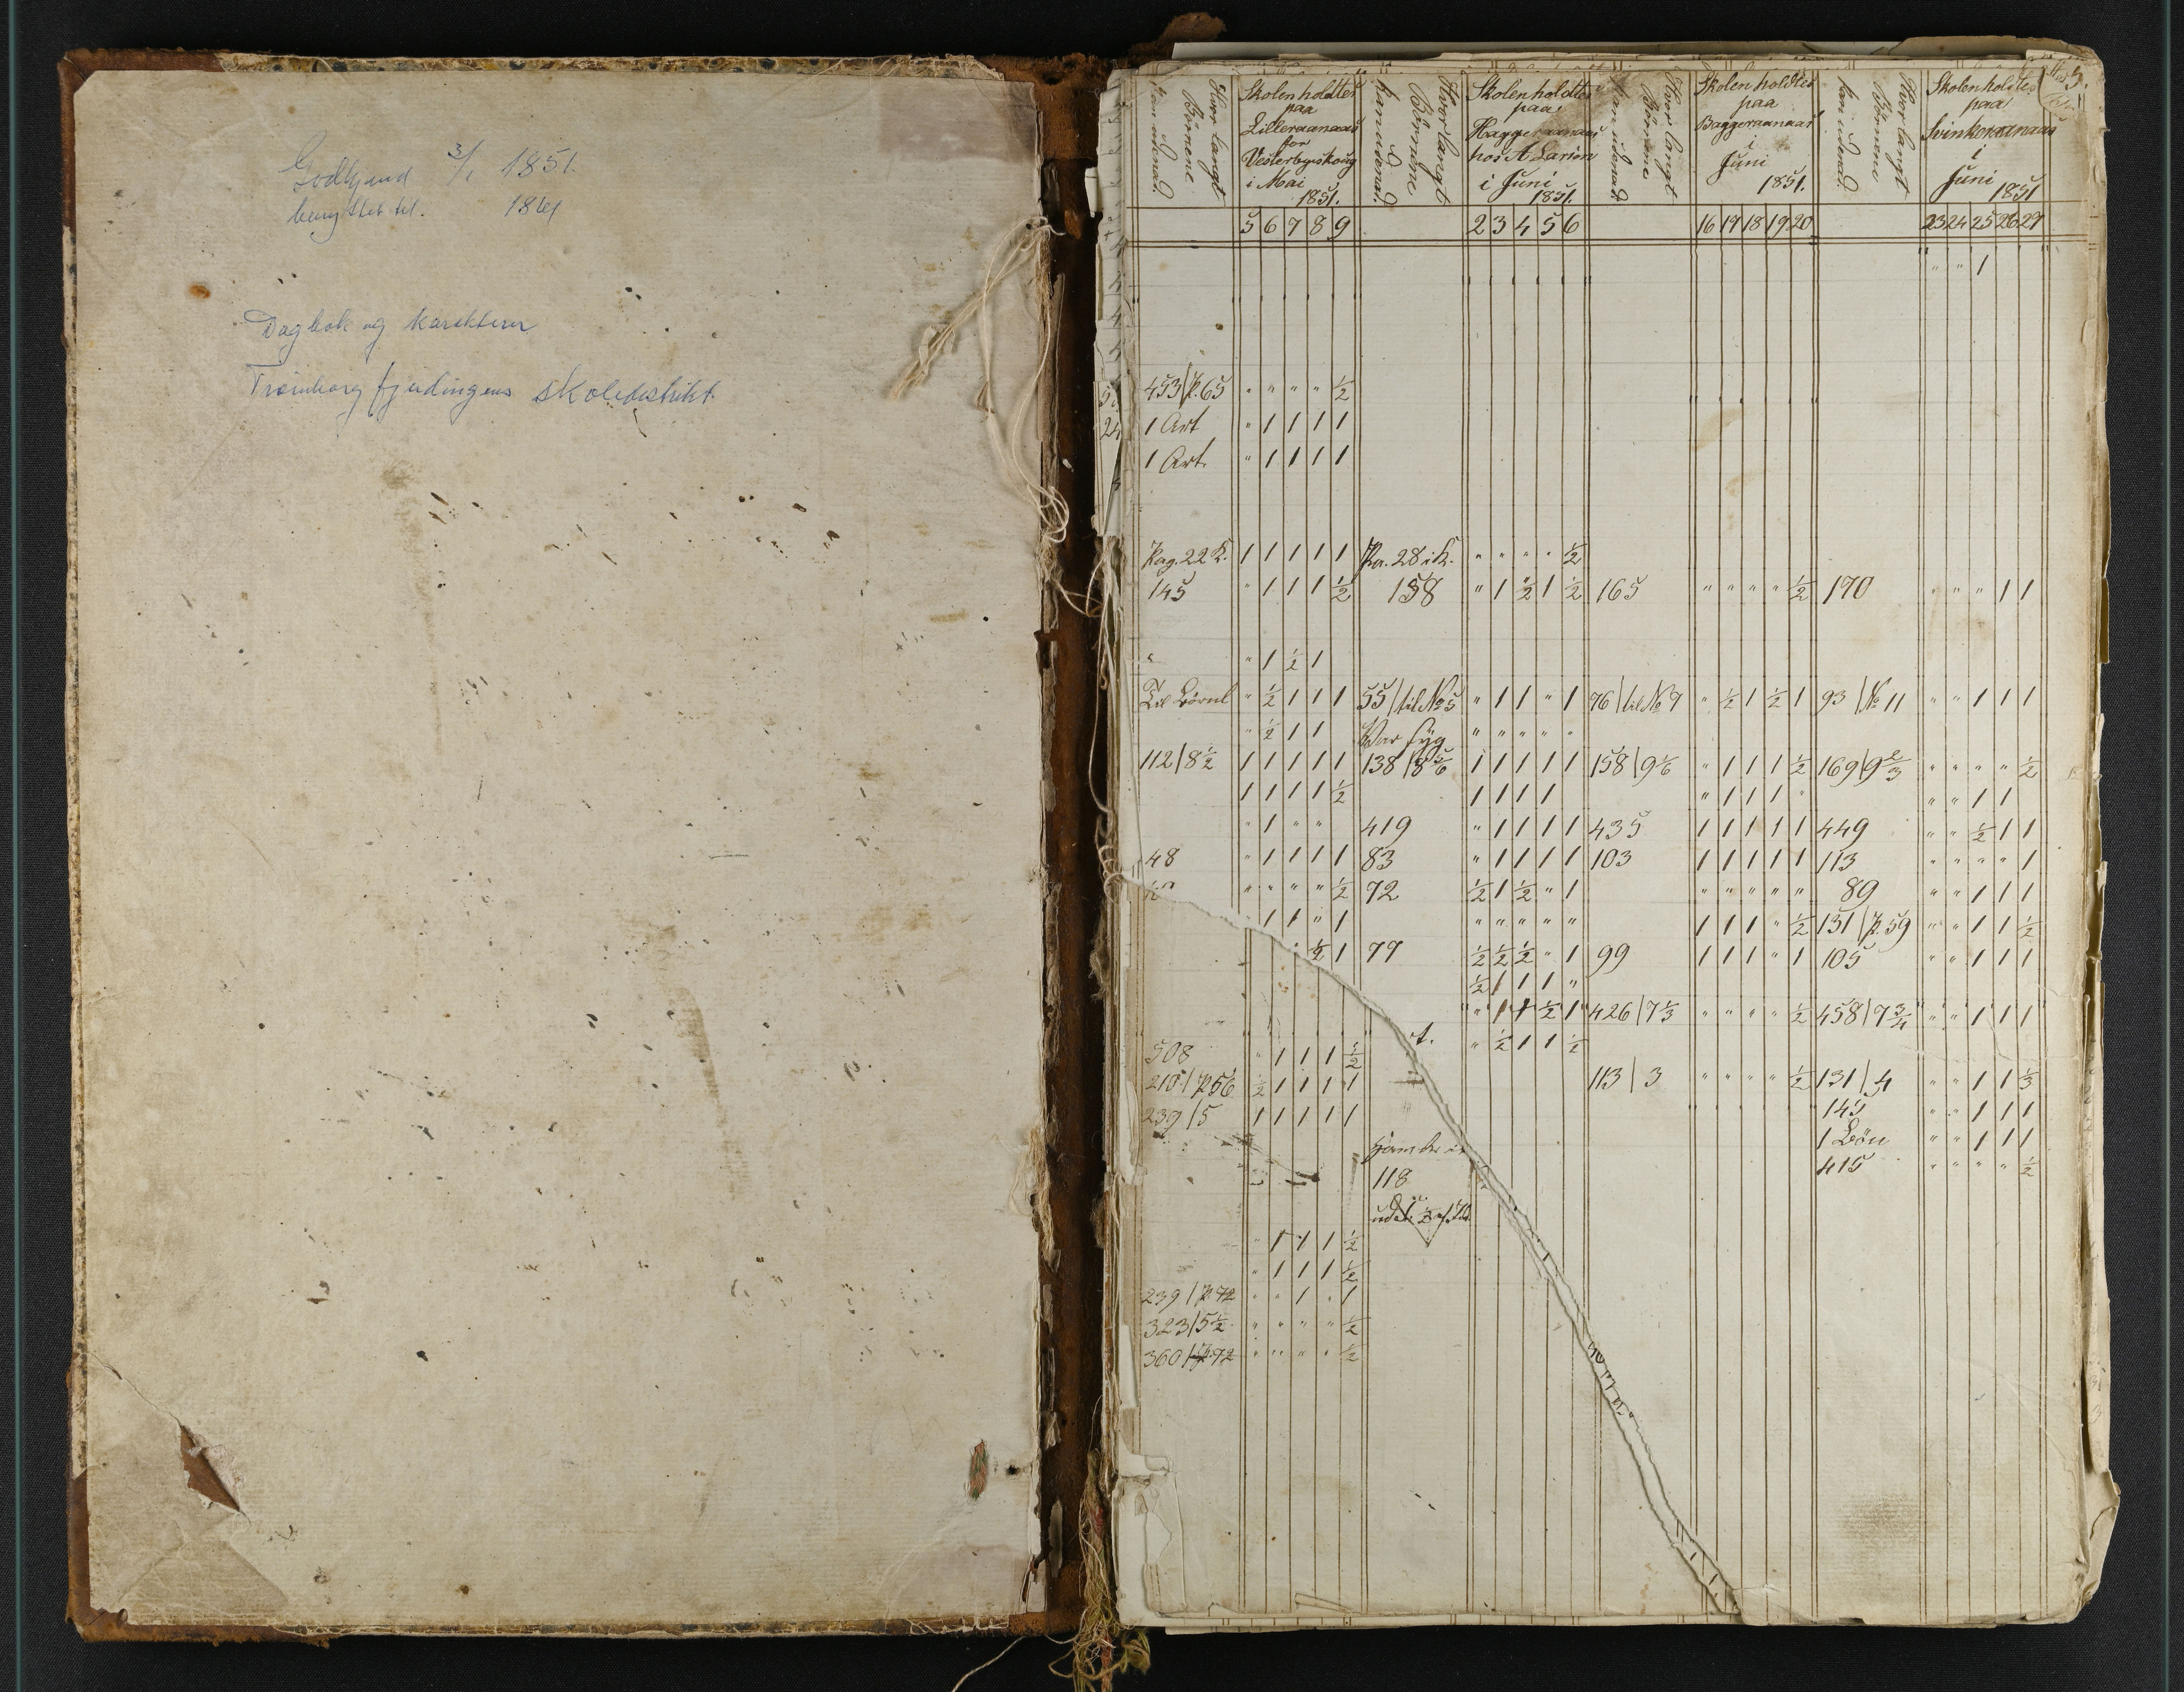 Godkjend 3/1 1851.
benyttet til. 1861
Dagbok og karakterer
Trømborg fjerdingens skoledistrikt.
3.
Hvor langt Børnene kan udenad.
Skolen holdtes paa Lilleraanaas for Vesterbyskoug i Mai 1851.
Hvor langt Børnene kan udenad.
Skolen holdtes paa Haggeraanaas hos A Larsen i Juni 1851.
Hvor langt Børnene kan udenad.
Skolen holdtes paa Baggeraanaas i Juni 1851.
Hvor langt Børnene kan udenad.
Skolen holdtes paa Svinkeraanaas i Juni 1851
5 6 7 8 9 2 3 4 5 6 16 17 18 19 20 23 24 25 26 27
" " 1
453/p.65 " " " " ½
1 Art " 1 1 1 1
1 Art. " 1 1 1 1
Pag. 22 K. 1 1 1 1 1 Pa. 28 i K. " " " " ½
145 " 1 1 1 ½ 158 " 1 ½ 1 ½ 165 " " " " ½ 170 " " " 1 1
" 1 ½ 1
Til " ½ 1 1 1 55/til No 5 " 1 1 " 1 76/til No 9 " ½ 1 ½ 1 93/No 11 " " 1 1 1
" ½ 1 1 Var syg " " " " "
112/8½ 1 1 1 1 1 138/8⅚ 1 1 1 1 1 158/9⅙ " 1 1 1 ½ 169/9⅔ " " " " ½
1 1 1 1 ½ 1 1 1 1 " 1 1 1 " " " 1 1
" 1 " " 419 " 1 1 1 1 435 1 1 1 1 1 449 " " ½ 1 1
48 " 1 1 1 1 83 " 1 1 1 1 103 1 1 1 1 1 113 " " " " 1
" " " " ½ 72 ½ 1 ½ " 1 " " " " " 89 " " 1 1 1
1 1 " 1 " " " " " 1 1 1 " ½ 131/p.59 " " 1 1 ½
" ½ 1 77 ½ ½ ½ " 1 99 1 1 1 " 1 105 " " 1 1 1
½ 1 1 1 "
" 1 1 ½ 1 426/7⅓ " " " " ½ 458/7¾ " " 1 1 1
508 " 1 1 1 ½ t. " ½ 1 1 ½
210/p56 ½ 1 1 1 1 113/3 " " " " ½ 131/4 " " 1 1 ⅓
239/5 1 1 1 1 1 145 " " 1 1 1
1 Bön " " 1 1 1
118 415 " " " " ½
" 1 1 1 ½
" 1 1 1 ½
239/p.72 " " 1 " 1
323/5½ " " " " ½
360/p.72 " " " " ½